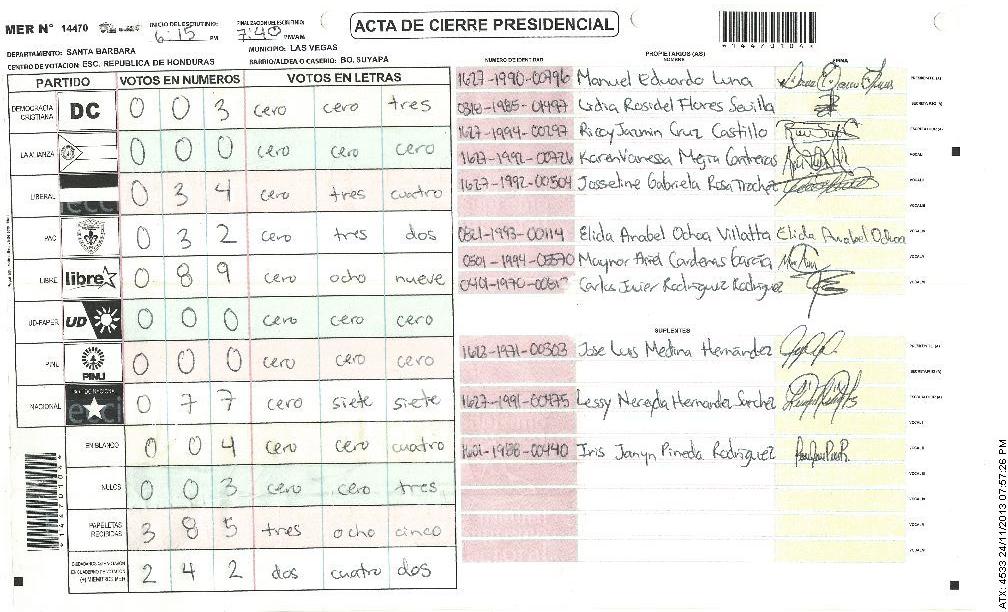 MER N° 14470
INICIO DEL ESCRUTINIO: 6:15 PM
FINALIZACION DEL ESCRUTINIO: 7:40 PM/AM
ACTA DE CIERRE PRESIDENCIAL
*14470104*
DEPARTAMENTO: SANTA BARBARA
MUNICIPIO: LAS VEGAS
CENTRO DE VOTACION: ESC. REPUBLICA DE HONDURAS
BARRIO/ALDEA O CASERIO: BO. SUYAPA
PARTIDO VOTOS EN NUMEROS VOTOS EN LETRAS
DEMOCRACIA CRISTIANA DC 0 0 3 cero cero tres
LA ALIANZA 0 0 0 cero cero cero
LIBERAL 0 3 4 cero tres cuatro
PAC 0 3 2 cero tres dos
LIBRE libre 0 8 9 cero ocho nueve
UD-FAPER UD 0 0 0 cero cero cero
PINU PINU 0 0 0 cero cero cero
NACIONAL 0 7 7 cero siete siete
EN BLANCO 0 0 4 cero cero cuatro
NULOS 0 0 3 cero cero tres
PAPELETAS RECIBIDAS 3 8 5 tres ocho cinco
2 4 2 dos cuatro dos
*14470104*
PROPIETARIOS (AS)
NUMERO DE IDENTIDAD NOMBRE FIRMA
1627-1990-00796 Manuel Eduardo Luna PRESIDENTE (A)
Lidia Rosidel Flores Sevilla SECRETARIO (A)
1627-1994-00297 Riccy Jazmin Cruz Castillo ESCRUTADOR (A)
1627-1992-00726 Karen Vanessa Mejia Contreras VOCAL I
1627-1992-00504 Josseline Gabriela Rosa Trochez VOCAL II
VOCAL III
0821-1993-00114 Elida Anabel Ochoa Villatta Elida Anabel Ochoa
0501-1994-03570 Maynor Ariel Cardenas Garcia
Carlos Javier Rodriguez Rodriguez
SUPLENTES
1623-1971-00303 Jose Luis Medina Hernández PRESIDENTE (A)
SECRETARIO (A)
1627-1991-00475 Lessy Nereyda Hernandez Sanchez ESCRUTADOR (A)
VOCAL I
Iris Janyn Pineda Rodriguez VOCAL II
VOCAL III
ATX: 4533 24/11/2013 07:57:26 PM